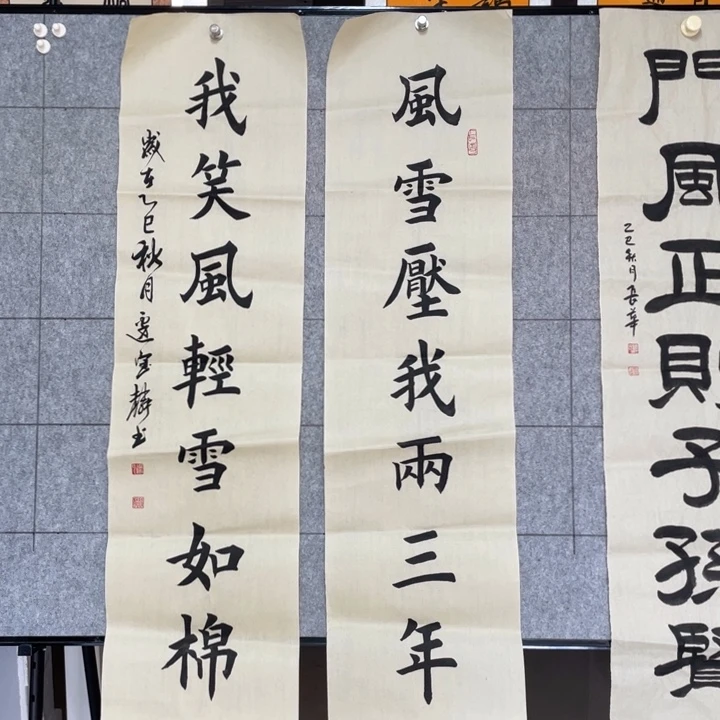 風雪壓我兩三年
我笑風輕雪如棉
歲在乙巳秋月邊寶麟书
門風正則子孫賢
乙巳秋月長華